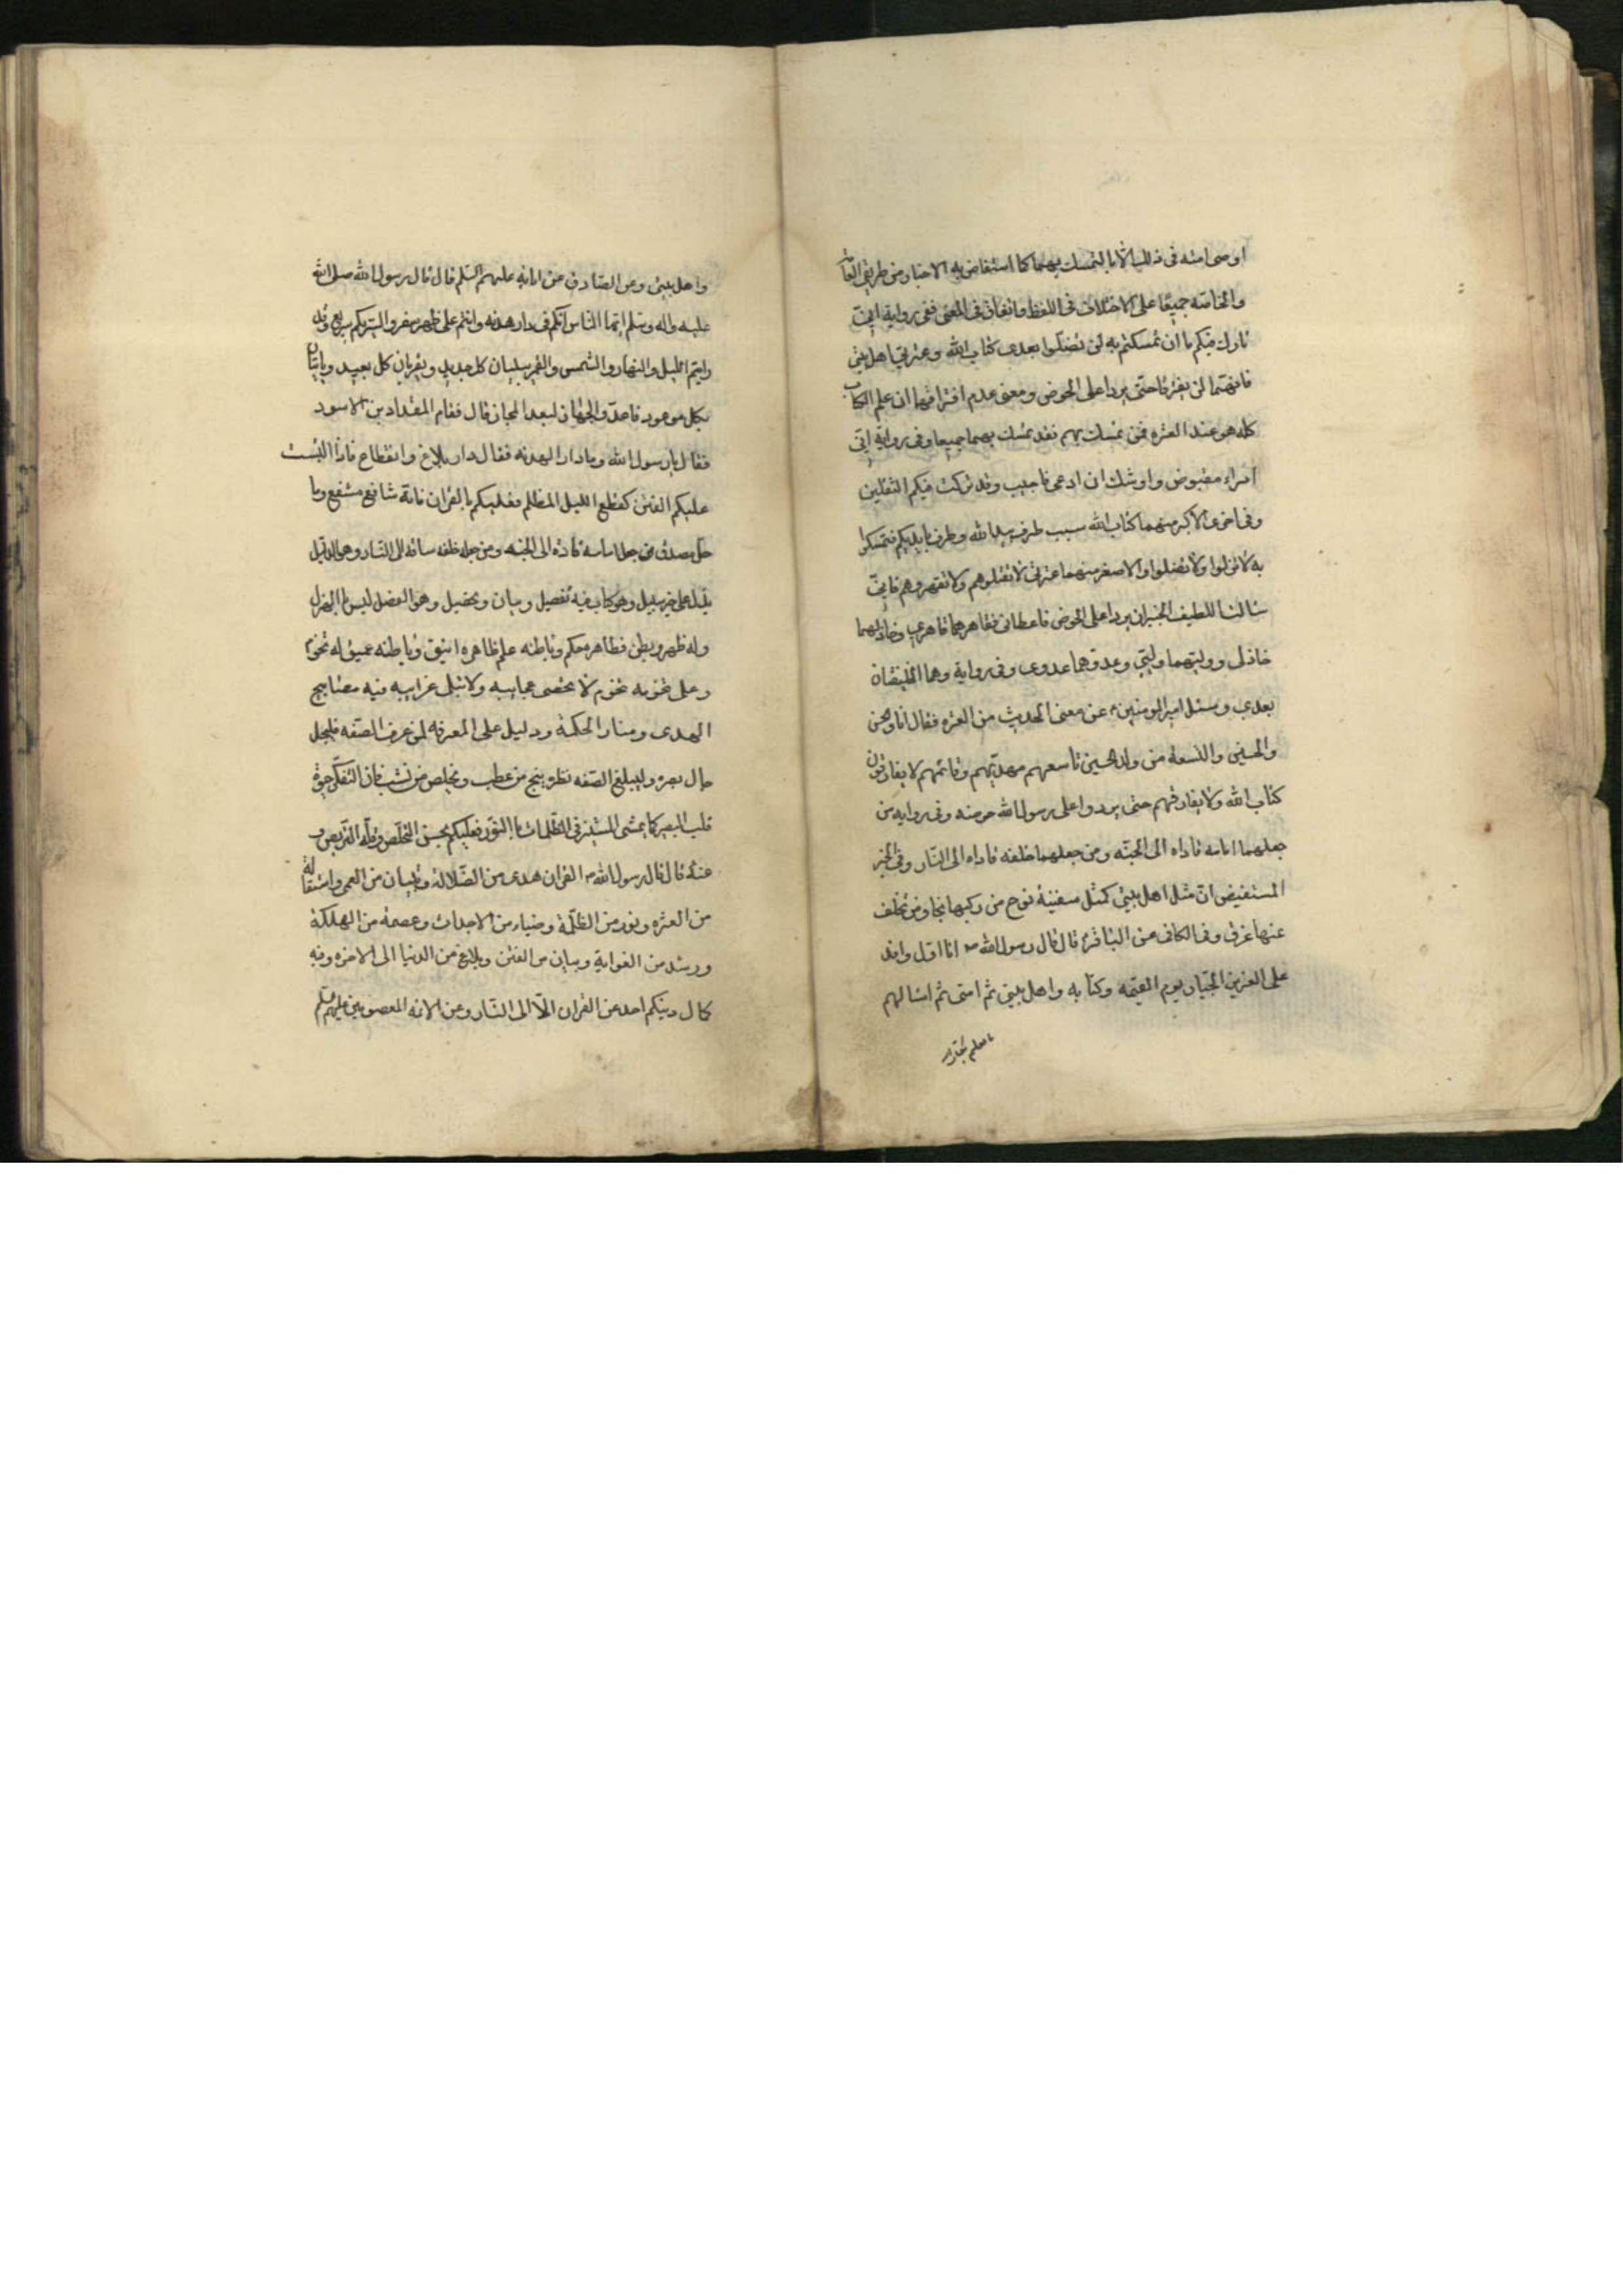 اوصى امته فى ذلك الا بالتمسك بهما كما استفاض به الاخبار من طريق العامة
والخاصّه جميعًا على اختلاف فى اللفظ واتفاق فى المعنى ففى رواية انى
تارك فيكم ما ان تمسكتم به لن تضلّوا بعدى كتاب الله وعترتى اهل بيتى
فانهما لن يفترقا حتّى يردا على الحوض ومعنى عدم افتراقهما ان علم الكتاب
كله هو عند العتره فمن تمسك بهم فقد تمسك بهما جميعا وفى رواية انّى
امراء مقبوض واوشك ان ادعى فاجيب وقد تركت فيكم الثقلين
وفى اخرى الاكبر منهما كتاب الله سبب طرف بيد الله وطرف بايديكم فتمسكوا
به لا تزلوا ولا تضلوا والاصغر منهما عترتى لا تقتلوهم ولا تقهروهم فانىّ
سالت اللطيف الخبير ان يردا على الحوض فاعطانى فقاهرهما قاهرى وخاذلهما
خاذلى ووليّهما وليّى وعدوّهما عدوى وفى رواية وهما الخليفتان
بعدى وسئل امير المومنين ع عن معنى الحديث من العتره فقال انا والحسن
والحسين والتسعة من ولد الحسين تاسعهم مهديّهم وقائمهم لا يفارقون
كتاب الله ولا يفارقهم حتى يردوا على رسول الله حوضه وفى رواية من
جعلهما امامه قاداه الى الجنّه ومن جعلهما خلفه قاداه الى النّار وفى الخبر
المستفيض انّ مثل اهل بيتى كمثل سفينة نوح من ركبها نجا ومن تخلف
عنها غرق وفى الكافى عن الباقر ع قال قال رسول الله ص انا اول وافد
على العزيز الجبّار يوم القيمه وكتابه واهل بيتى ثم امتى ثم اسالهم
ما فعلتم بكتاب الله
واهل بيتى وعن الصّادق عن ابائه عليهم السّلم قال قال رسول الله صلى الله
عليه واله وسلم ايّها النّاس انّكم فى دار هدنه وانتم على ظهر سفر والسّير بكم سريع وقد
رايتم الليل والنهار والشمس والقمر يبليان كل جديد ويقربان كل بعيد وياتيان
بكل موعود فاعدّوا الجهاز لبعد المجاز قال فقام المقداد بن الاسود
فقال يا رسول الله وما دار الهدنه فقال دار بلاغ وانقطاع فاذا التبست
عليكم الفتن كقطع الليل المظلم فعليكم بالقران فانه شافع مشفع وما
حل مصدق من جعله امامه قاده الى الجنه ومن جعله خلفه ساقه الى النّار وهو الدليل
يدل على خير سبيل وهو كتاب فيه تفصيل وبيان وتحصيل وهو الفصل ليس بالهزل
وله ظهر وبطن فظاهره حكم وباطنه علم ظاهره انيق وباطنه عميق له تخوم
وعلى تخومه تخوم لا تحصى عجايبه ولا تبلى غرايبه فيه مصابيح
الهدى ومنار الحكمة ودليل على المعرفه لمن عرف الصفه فليجل
جال بصره وليبلغ الصفه نظره ينج من عطب ويخلص من نشب فان التفكّر حيوة
قلب البصير كما يمشى المستنير فى الظّلمات بالنور فعليكم بحسن التخلّص وقلّه التّربص و
عنه ع قال قال رسول الله ص القران هدى من الضّلالة وتبيان من العمى واستقالة
من العثره ونور من الظلمة وضياء من الاحداث وعصمة من الهلكة
ورشد من الغواية وبيان من الفتن وبلاغ من الدنيا الى الاخره وفيه
كمال دينكم احد عن القران الّا الى النّار وعن الائمه المعصومين عليهم السّلم